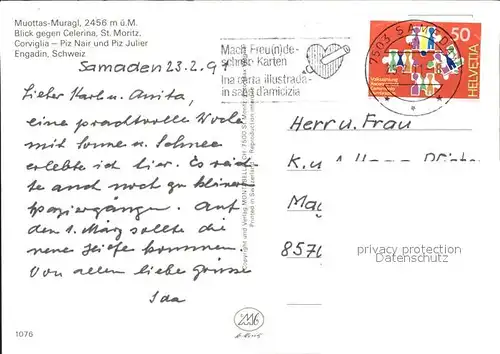 Muottas-Muragl, 2456 m ü.M.
Blick gegen Celerina, St. Moritz,
Corviglia – Piz Nair und Piz Julier
Engadin, Schweiz
Samaden 23.2.9
Lieber Karl u. Anita,
eine prachtvolle Woche
mit Sonne u. Schnee
erlebte ich hier. Es reich-
te auch noch zu kleinen
Spaziergängen. Auf
den 1. März sollte die
neue kommen.
Von allen liebe Grüsse
Ida
1076
Mach Freu(n)de-
schreib Karten
Ina carta illustrada-
in salüd d'amicizia
7503 SAMEDAN
50
HELVETIA
Herr u. Frau
K. u.
857
privacy protection
Datenschutz
Printed in Switzerland